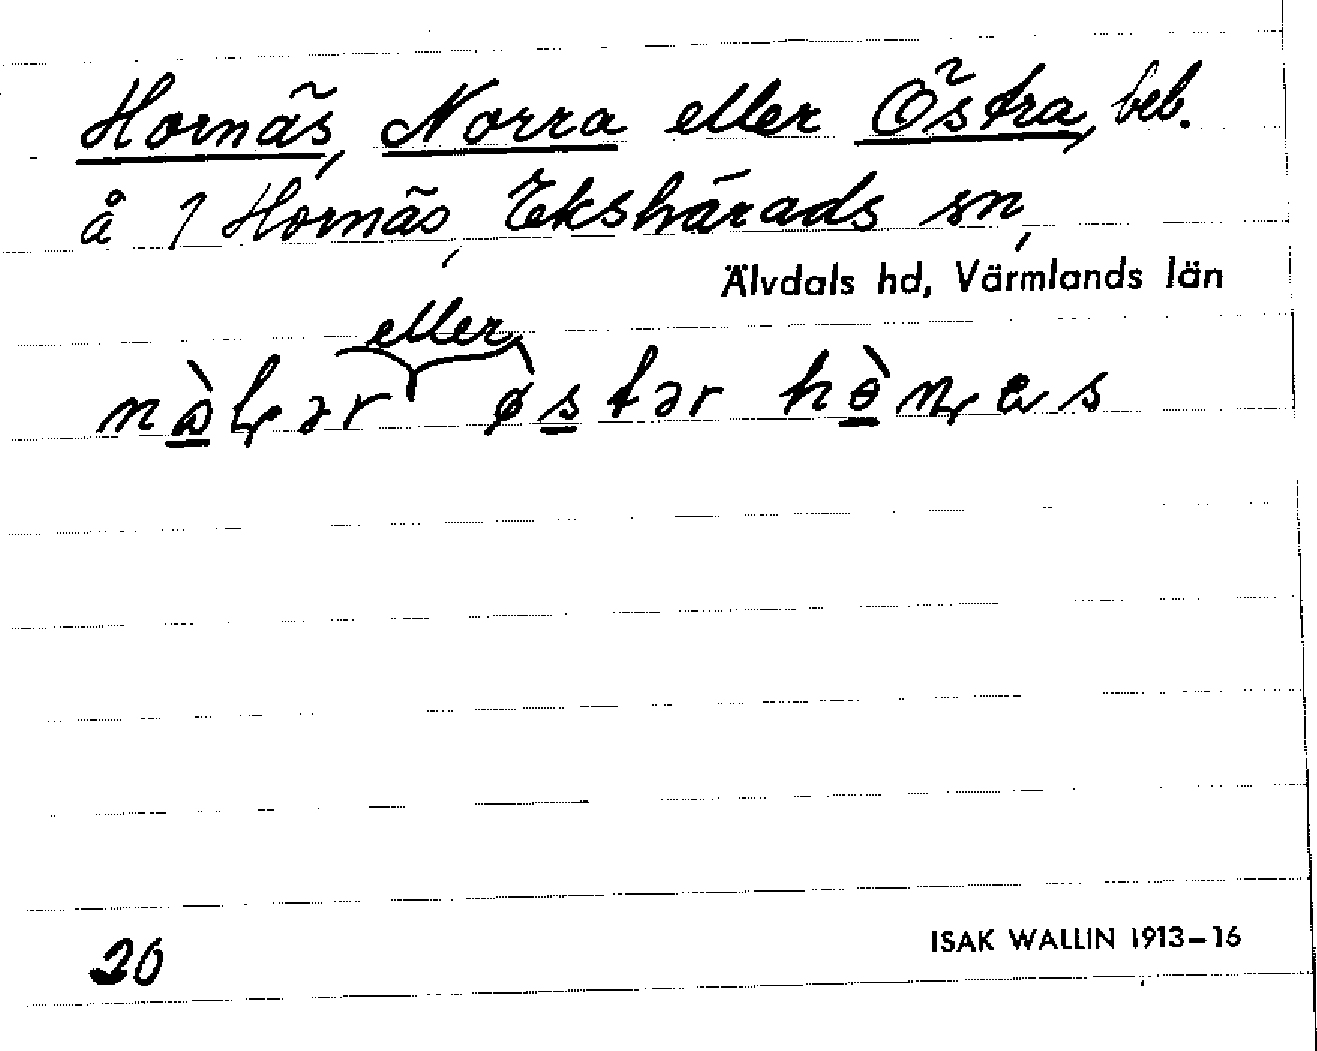 Hornäs, Norra eller Östra, beb.
å 1 Hornäs, Ekshärads sn,
Älvdals hd, Värmlands län
eller
østər
ISAK WALLIN 1913–16
20